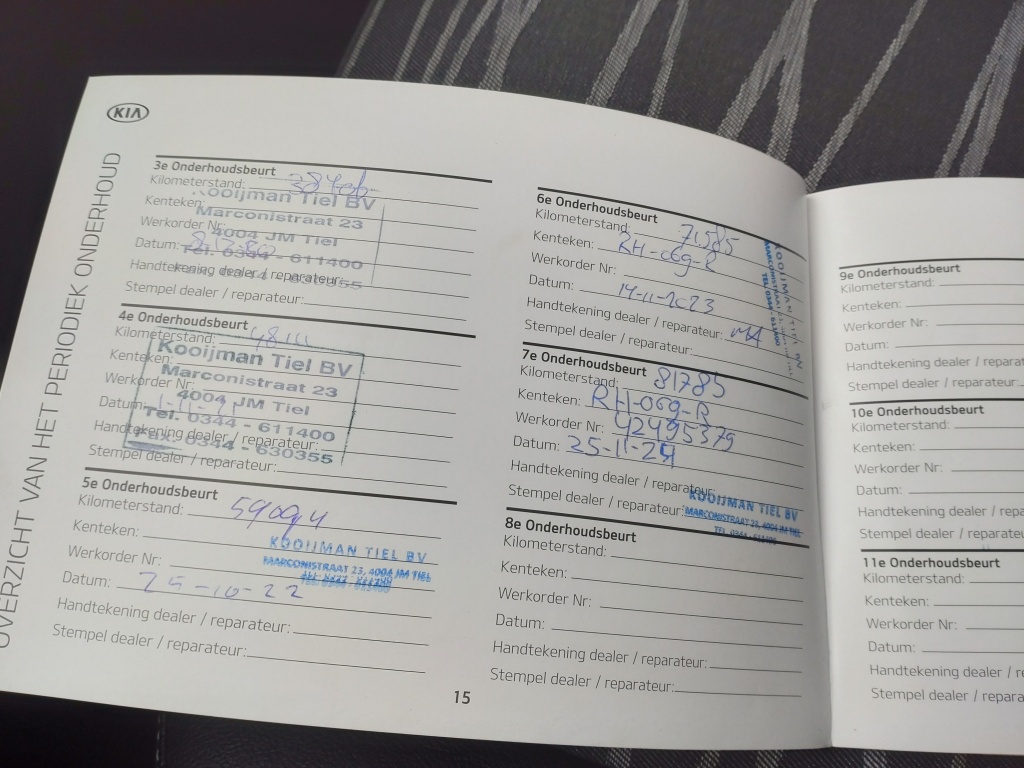 KIA
OVERZICHT VAN HET PERIODIEK ONDERHOUD
3e Onderhoudsbeurt
Kilometerstand:
Kenteken:
Werkorder Nr:
Datum:
Handtekening dealer / reparateur:
Stempel dealer / reparateur:
Kooijman Tiel BV
Marconistraat 23
4004 JM Tiel
Tel. 0344 - 611400
630355
4e Onderhoudsbeurt
Kilometerstand:
Kenteken:
Werkorder Nr:
Datum:
Handtekening dealer / reparateur:
Stempel dealer / reparateur:
Kooijman Tiel BV
Marconistraat 23
4004 JM Tiel
Tel. 0344 - 611400
Fax. 0344 - 630355
5e Onderhoudsbeurt
Kilometerstand:
Kenteken:
Werkorder Nr:
Datum: 25-10-22
Handtekening dealer / reparateur:
Stempel dealer / reparateur:
KOOIJMAN TIEL BV
MARCONISTRAAT 23, 4004 JM TIEL
6e Onderhoudsbeurt
Kilometerstand: 71585
Kenteken: RH-069-R
Werkorder Nr:
Datum: 14-11-2023
Handtekening dealer / reparateur:
Stempel dealer / reparateur:
7e Onderhoudsbeurt
Kilometerstand: 81785
Kenteken: RH-069-R
Werkorder Nr: 42495379
Datum: 25-11-24
Handtekening dealer / reparateur:
Stempel dealer / reparateur:
KOOIJMAN TIEL BV
MARCONISTRAAT 23, 4004 JM TIEL
TEL. 0344 - 611400
8e Onderhoudsbeurt
Kilometerstand:
Kenteken:
Werkorder Nr:
Datum:
Handtekening dealer / reparateur:
Stempel dealer / reparateur:
15
9e Onderhoudsbeurt
Kilometerstand:
Kenteken:
Werkorder Nr:
Datum:
Handtekening dealer / reparat
Stempel dealer / reparateur
10e Onderhoudsbeurt
Kilometerstand:
Kenteken:
Werkorder Nr:
Datum:
Handtekening dealer / repara
Stempel dealer / reparateu
11e Onderhoudsbeurt
Kilometerstand:
Kenteken:
Werkorder Nr:
Datum:
Handtekening dealer / r
Stempel dealer / repara